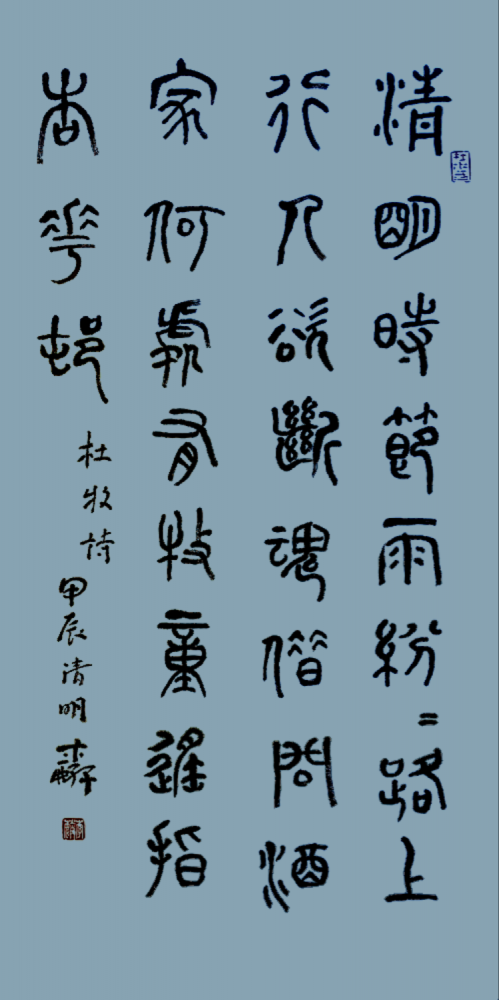 清明時節雨紛〻路上
行人欲斷魂借問酒
家何處有牧童遥指
杏花邨
杜牧詩
甲辰清明